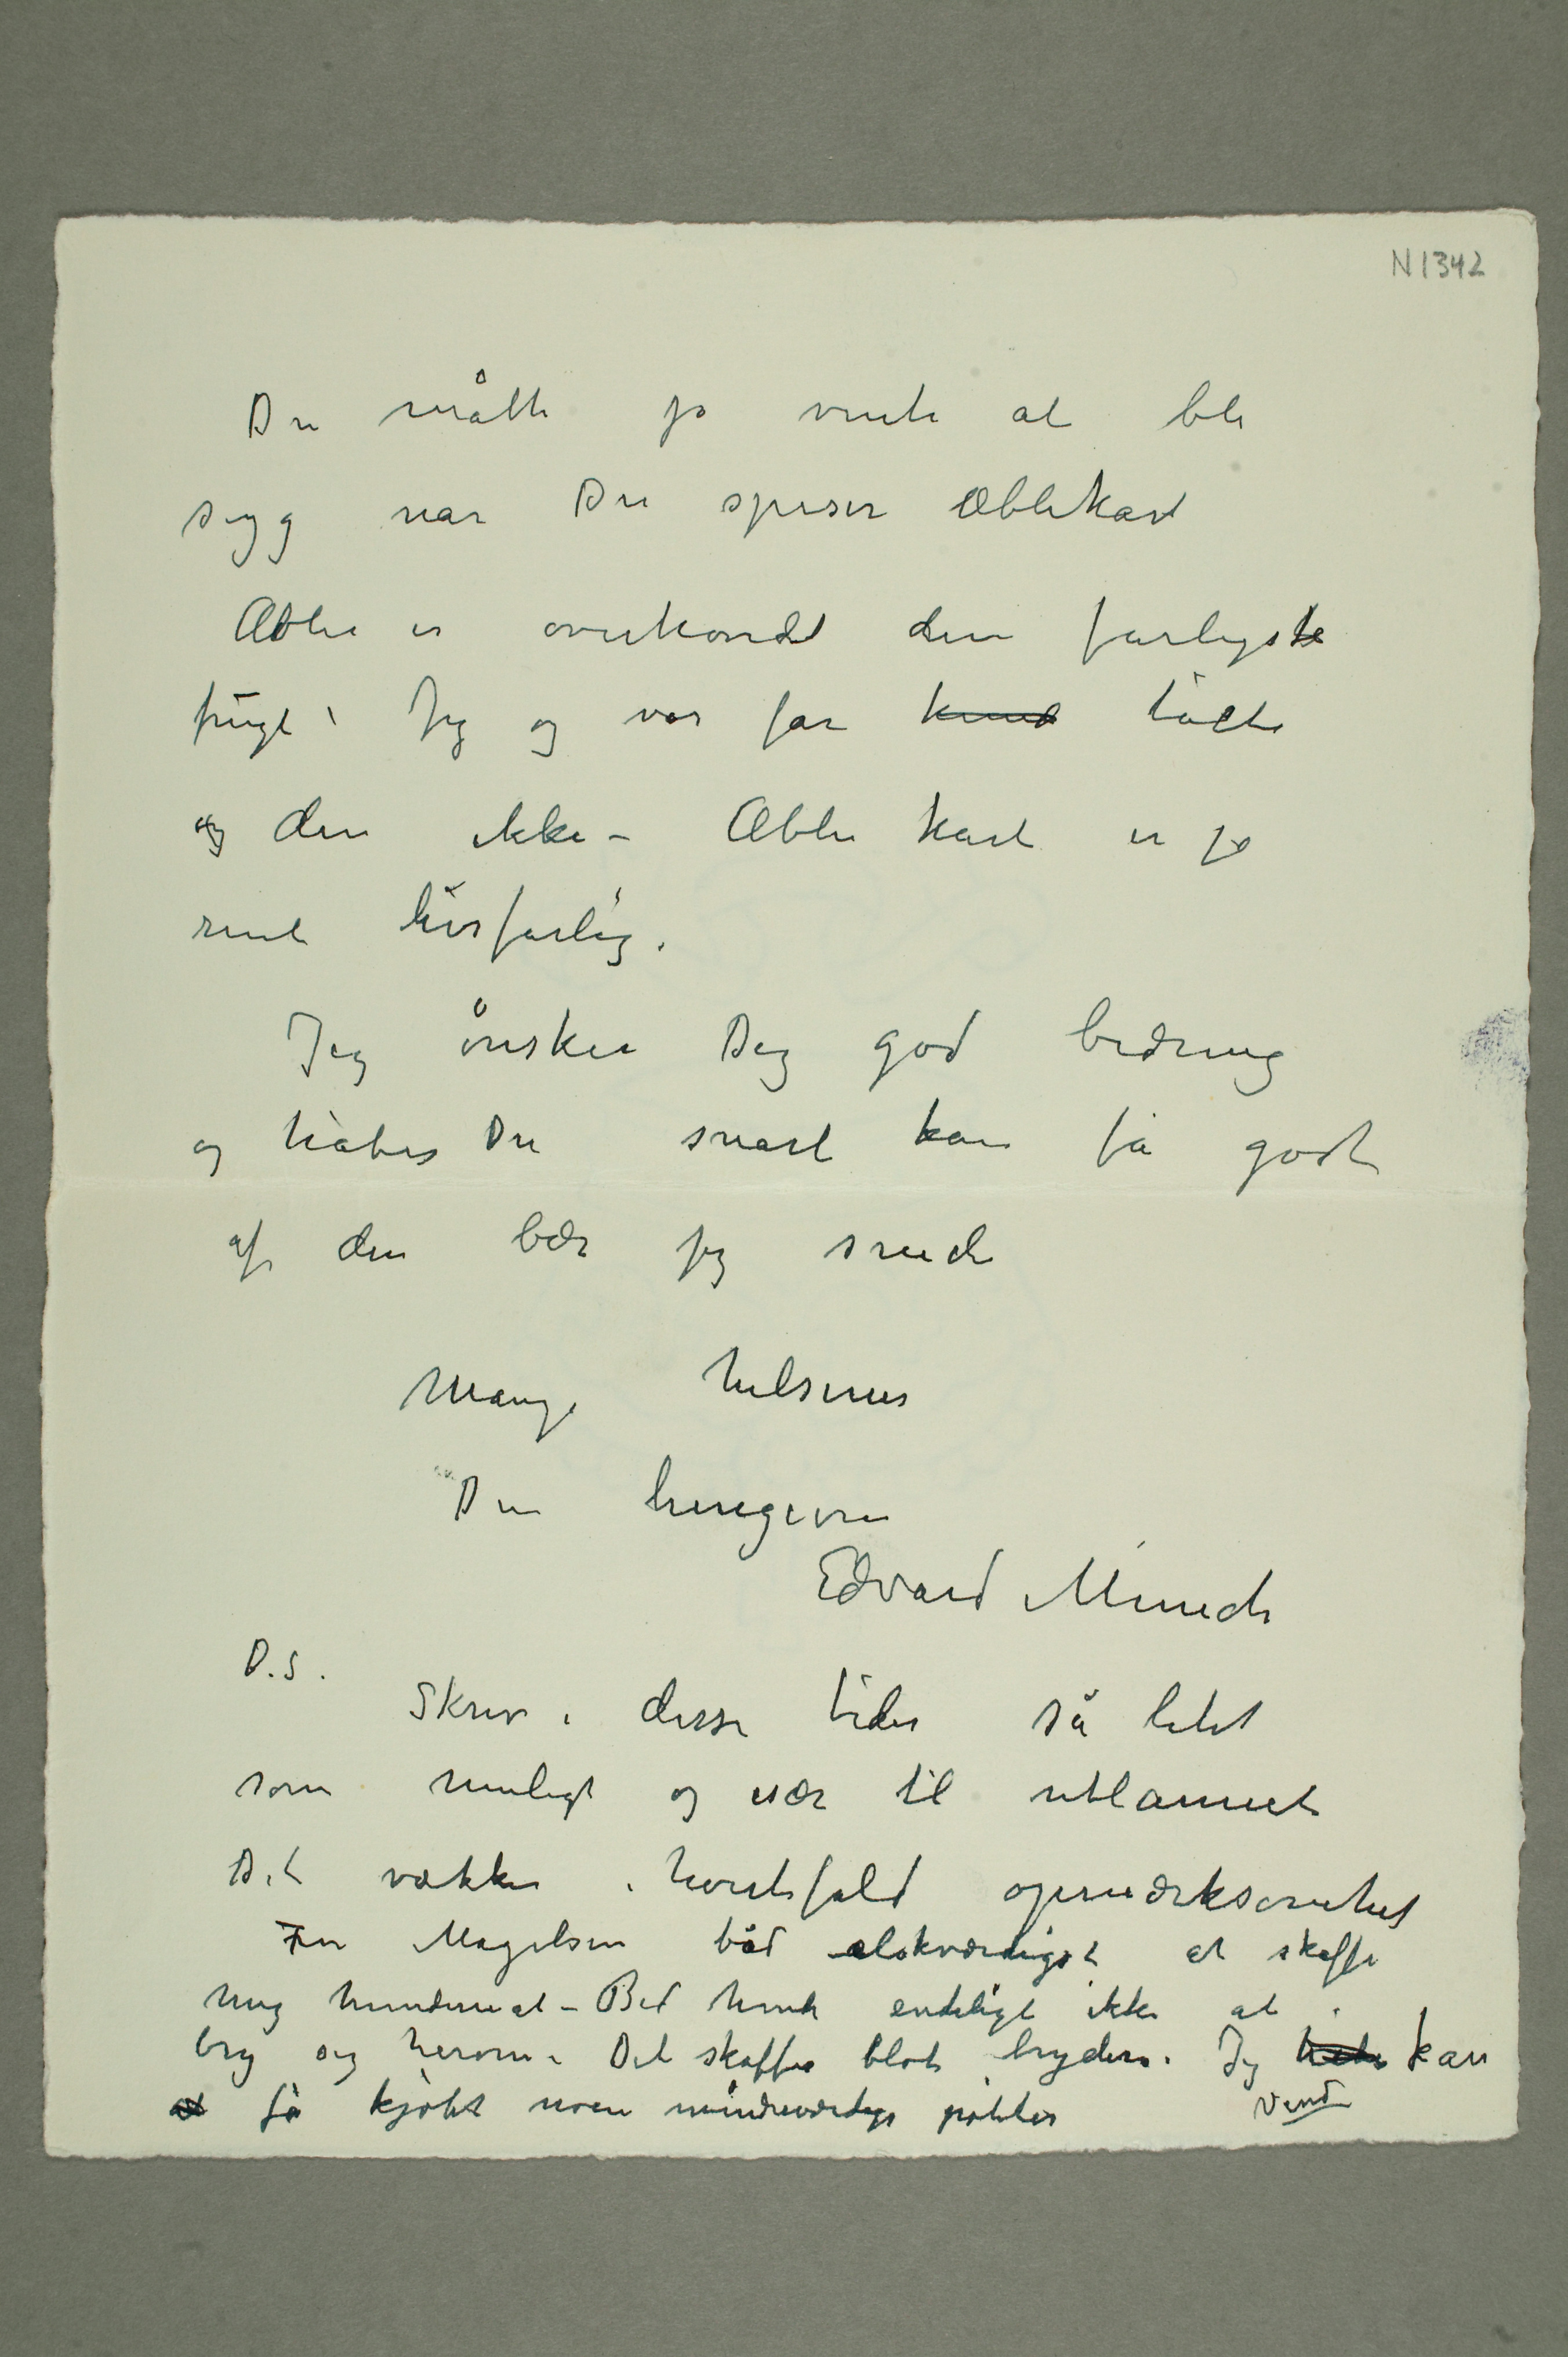 N 1342
Du måtte jo vente at bli
syg når Du spiser Æblekart
Æbler er overhovedet den farligste
frugt i Jeg og vor far kund tålte
og den ikke – Æble kart er jo
rent livsfarlig.
Jeg ønsker Dig god bedring
og håber Du snart kan få godt
af den bær jeg sendte
Mange hilsener
Din hengivne
Edvard Munch
P.S.
Skriv i disse tider så lidet
som muligt og især til utlannet
Det vækker i hvertfald opmærksomhet
Fru Magelsen bød elskværdigst at skaffe
mig hundemat – Bed hende endeligt ikke at
bry sig herom. Det skaffer blot bryderi. Jeg kan
at få kjøbt noen mindreværdige pøtiter
Vend